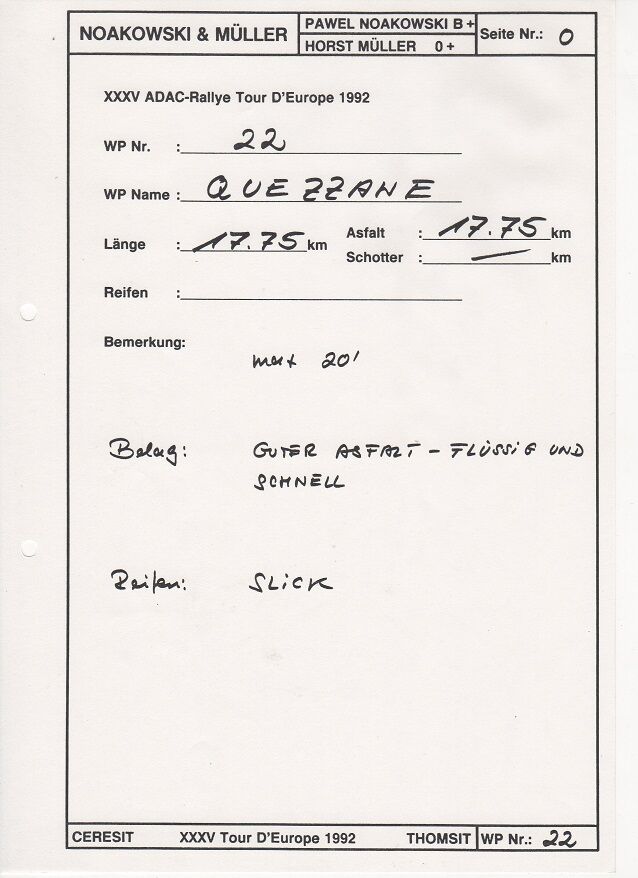 NOAKOWSKI & MÜLLER
PAWEL NOAKOWSKI B +
HORST MÜLLER 0 +
Seite Nr.: 0
XXXV ADAC-Rallye Tour D'Europe 1992
WP Nr. : 22
WP Name : QUEZZANE
Länge : 17.75 km
Asfalt : 17.75 km
Schotter : — km
Reifen :
Bemerkung:
20'
Belag: GUTER ASFALT - FLÜSSIG UND
SCHNELL
Reifen: SLICK
CERESIT XXXV Tour D'Europe 1992 THOMSIT WP Nr.: 22